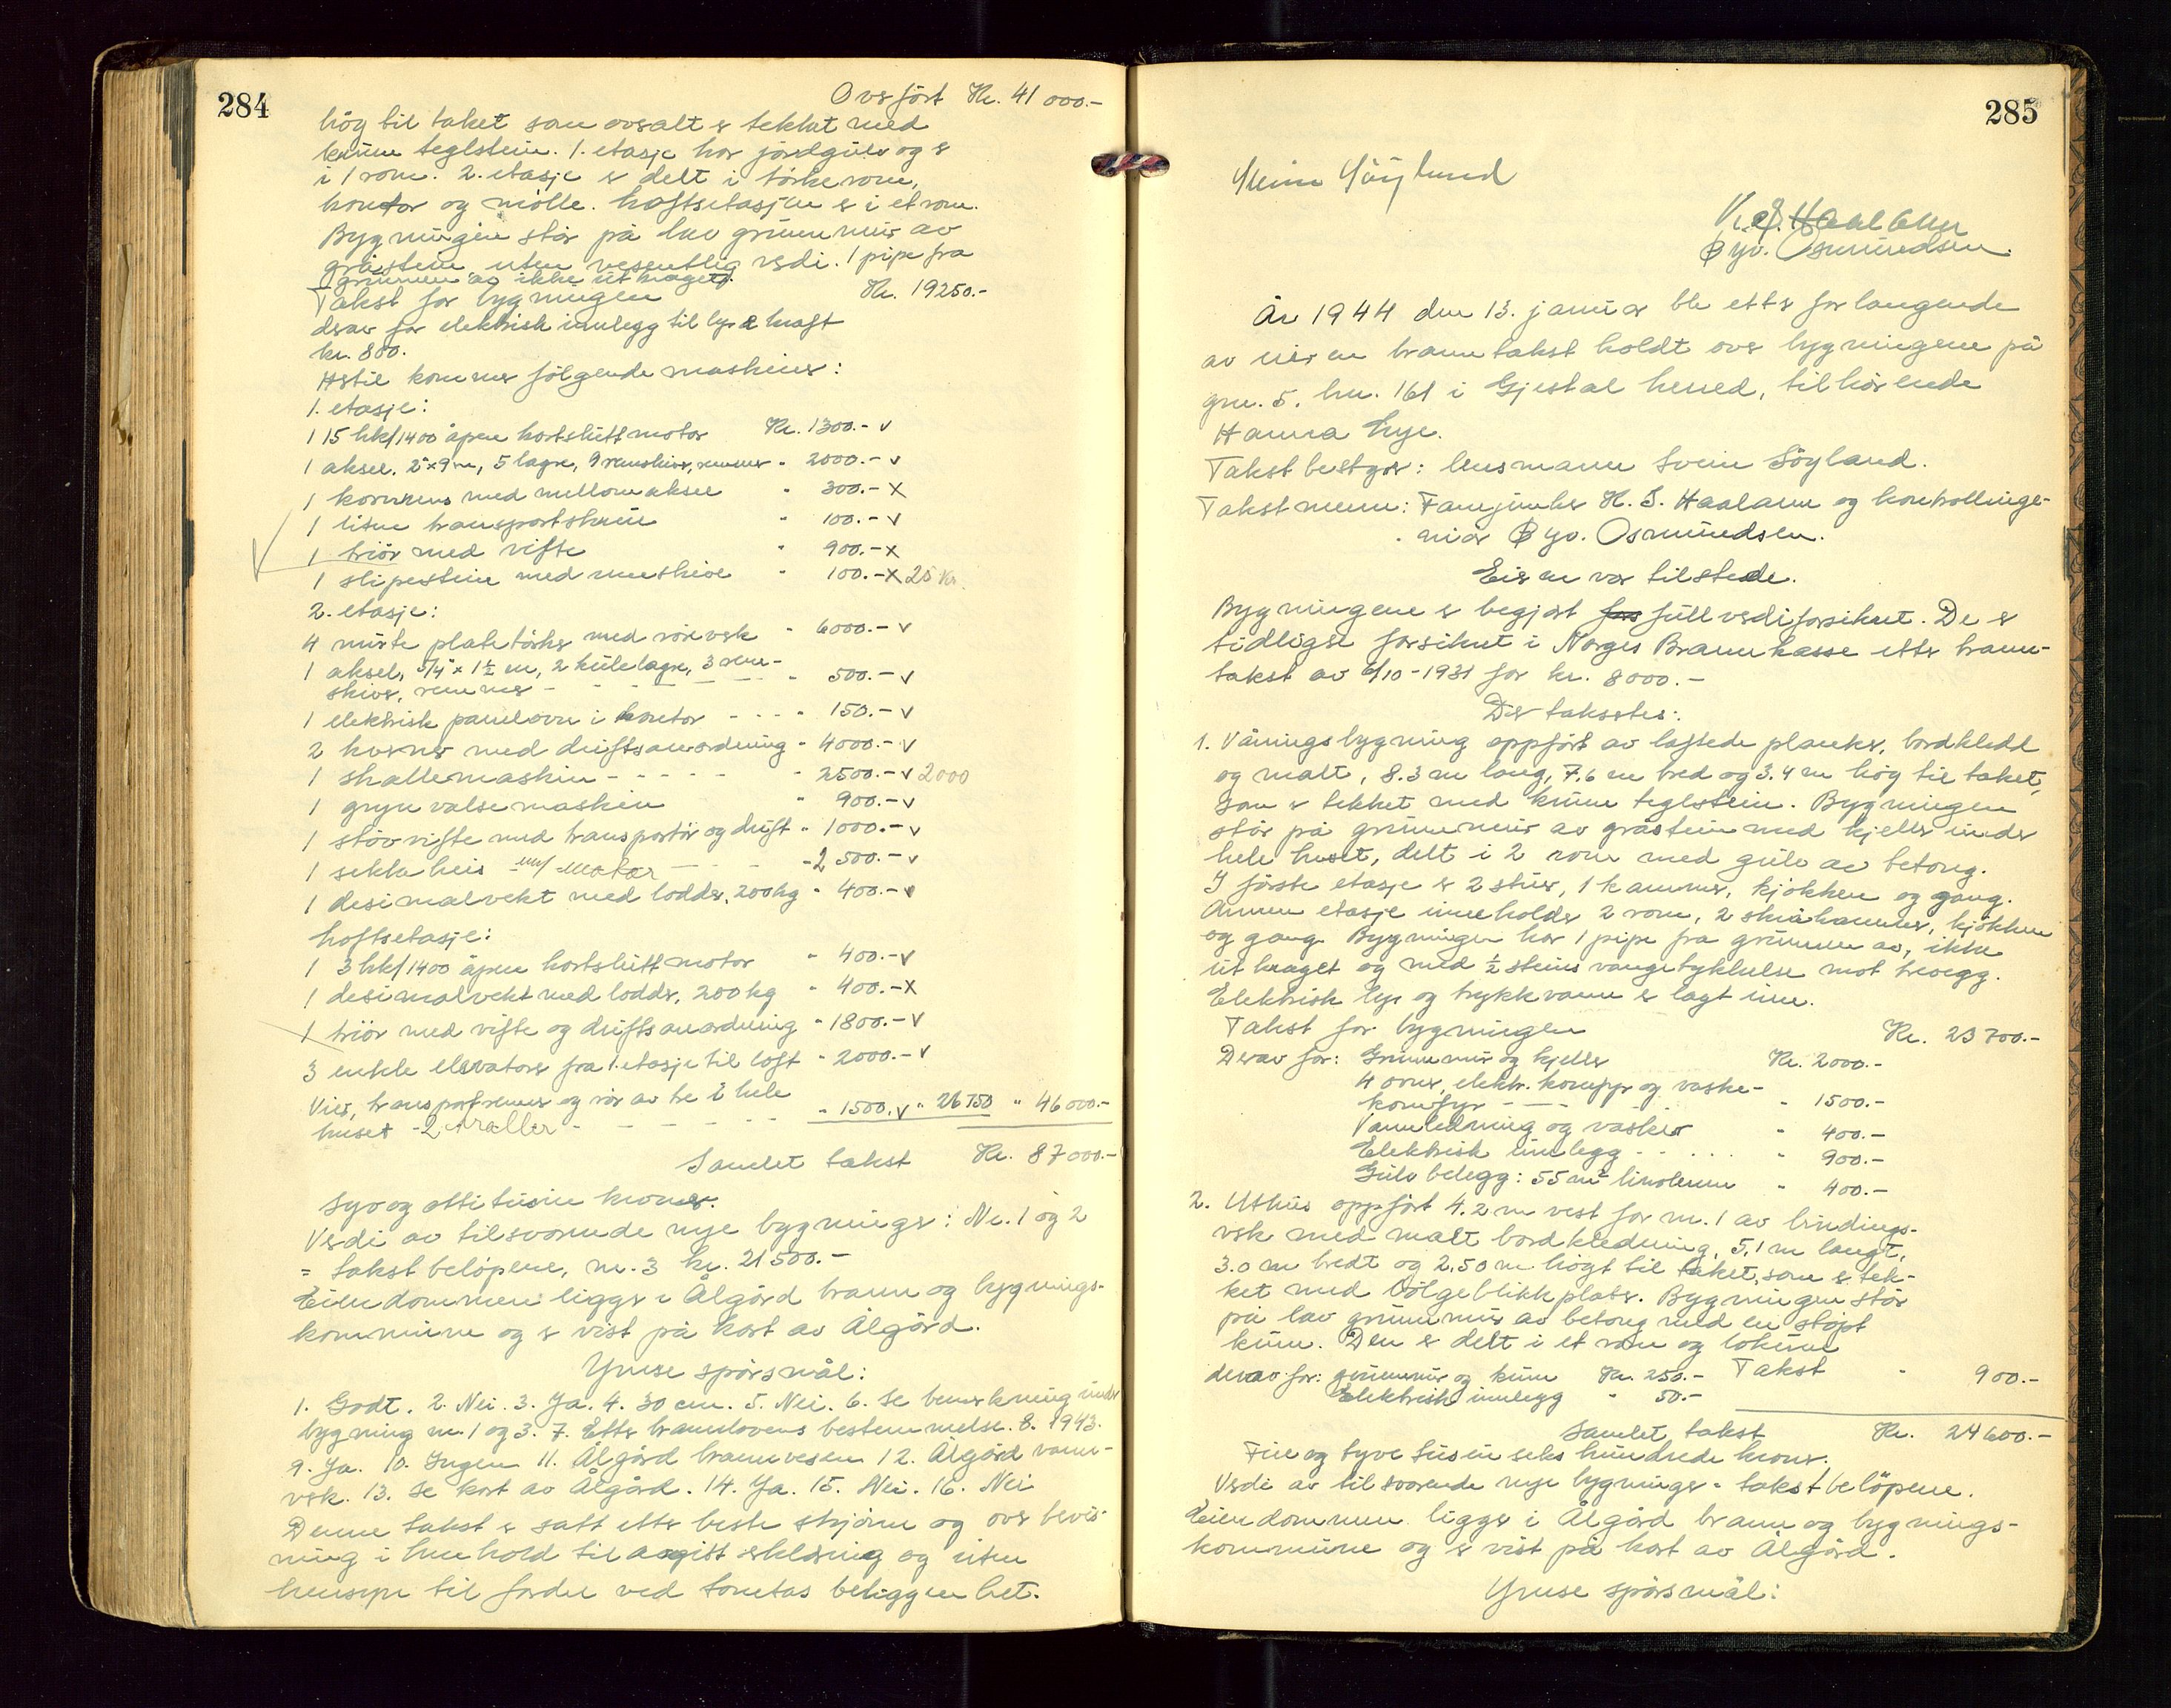 284
Overfört Kr. 41 000.-
høy til taket som overalt er tekket med
krum teglstein. 1. etasje har jordgulv og er
i 1 rom. 2. etasje er delt i tørkerom,
kontor og mølle. Loftsetasjen er i et rom.
Bygningen står på lav grunnmur av
gråstein uten vesentlig verdi. 1 pipe fra
grunnen av ikke utkraget.
Takst for bygningen Kr. 19250.-
derav for elektrisk innlegg til lys & kraft
kr. 800.
Hertil kommer følgende maskiner:
1. etasje:
1 15 hk/1400 åpen kortslutt motor Kr. 1300.- v
1 aksel. 2"x9 m, 5 lagre, 9 remskiver, remmer " 2000.- v
1 kornrens med mellomaksel " 300.- x
1 liten transportskrue " 100.- v
1 triør med vifte " 900.- x
1 slipestein med remskive " 100.- x 25 kr.
2. etasje:
4 murte platetørker med rørverk " 6000.- v
1 aksel, 5/4" x 1½ m, 2 kulelagre, 3 rem-
skiver, remmer - - - - " 500.- v
1 elektrisk panelovn i kontor - - - " 150.- v
2 kverner med driftsanordning " 4000.- v
1 skallemaskin - - - - - " 2500.- v 2000
1 grynvalsemaskin " 900.- v
1 støvvifte med transportør og drift " 1000.- v
1 sekkeheis m/ motor - - - " 2 500.- v
1 desimalvekt med lodder, 200 kg " 400.- v
Loftsetasje:
1 3 hk/1400 åpen kortslutt motor " 400.- v
1 desimalvekt med lodder, 200 kg " 400.- x
1 triør med vifte og driftsanordning " 1800.- v
3 enkle elevatorer fra 1. etasje til loft " 2000.- v
transportrenner og rør av tre i hele
huset - 2 traller - - - - - " 1500. v " 26 750 " 46 000.-
Samlet takst Kr. 87 000.-
Syvogotti tusin kroner.
Verdi av tilsvarende nye bygninger: Nr. 1 og 2
= takstbeløpene, nr. 3 kr. 21 500.-
Eiendommen ligger i Ålgård brann og bygnings-
kommune og er vist på kart av Ålgård.
Ymse spørsmål:
1. Godt. 2. Nei. 3. Ja. 4. 30 cm. 5. Nei. 6. Se bemerkning under
bygning nr. 1 og 3. 7. Etter brannlovens bestemmelse. 8. 1943.
9. Ja. 10. Ingen 11. Ålgård brannvesen 12. Ålgård vann-
verk. 13. Se kart av Ålgård. 14. Ja. 15. Nei. 16. Nei
Denne takst er satt etter beste skjønn og over bevis-
ning i henhold til avgitt erklæring og uten
hensyn til fordel ved tomtas beliggenhet.
285
Svein Söyland
K. S. Haaland
Øyv. Osmundsen.
År 1944 den 13. januar ble etter forlangende
av eieren branntakst holdt over bygningene på
gnr. 5. bnr. 161 i Gjestal herred, tilhørende
Hanna Lye.
Takstbestyrer: lensmann Svein Söyland.
Takstmenn: Fanejunker K. S. Haaland og kontrollinge-
niør Øyv. Osmundsen.
Eieren var tilstede.
Bygningene er begjært for fullverdiforsikret. De er
tidligere forsikret i Norges Brannkasse etter brann-
takst av 6/10-1931 for kr. 8000.-
Der takseres:
1. Våningsbygning oppført av laftede planker, bordkledd
og malt, 8.3 m lang, 7.6 m bred og 3.4 m høy til taket,
som er tekket med krum teglstein. Bygningen
står på grunnmur av gråstein med kjeller under
hele huset, delt i 2 rom med gulv av betong.
I første etasje er 2 stuer, 1 kammer, kjøkken og gang.
Annen etasje inneholder 2 rom, 2 skråkammer, kjøkken
og gang. Bygningen har 1 pipe fra grunnen av, ikke
utkraget og med ½ steins vangetykkelse mot trevegg.
Elektrisk lys og trykkvann er lagt inn.
Takst for bygningen Kr. 23 700.-
Derav for: Grunnmur og kjeller Kr. 2000.-
4 ovner, elektr. komfyr og vaske-
komfyr - - - " 1500.-
Vannledning og vasker " 400.-
Elektrisk innlegg - - . . . " 900.-
Gulvbelegg: 55 m² linoleum " 400.-
2. Uthus oppført 4.2 m vest for nr. 1 av bindings-
verk med malt bordkledning, 5,1 m langt,
3.0 m bredt og 2,50 m høgt til taket, som er tek-
ket med bølgeblikkplater. Bygningen står
på lav grunnmur av betong med en støpt
kum. Den er delt i et rom og lokum
Takst " 900.-
derav for: grunnmur og kum Kr. 250.-
Elektrisk innlegg " 50.-
Samlet takst Kr. 24 600.-
Fire og tyve tusin seks hundrede kroner.
Verdi av tilsvarende nye bygninger = takstbeløpene.
Eiendommen ligger i Ålgård brann og bygnings-
kommune og er vist på kart av Ålgård.
Ymse spørsmål: